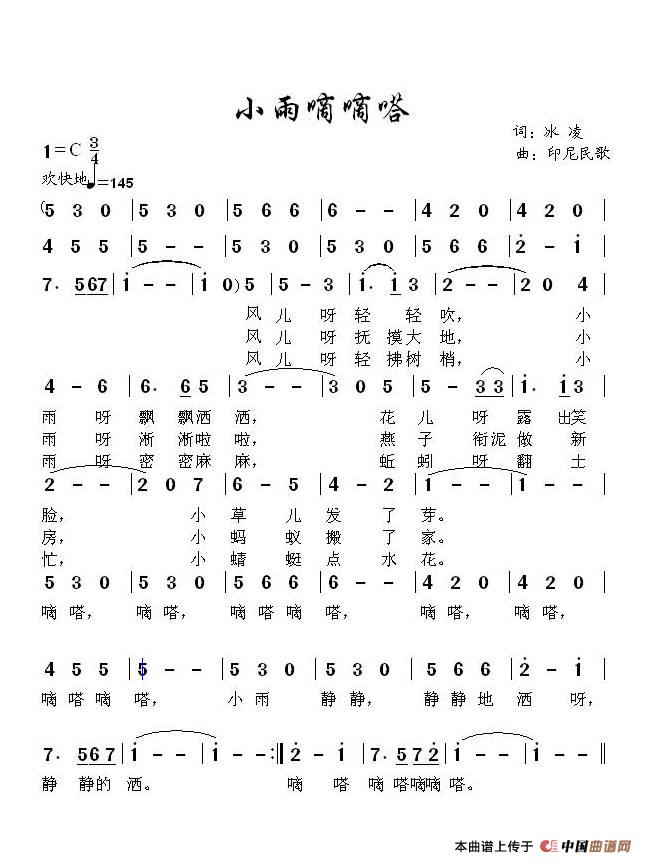 小雨嘀嘀嗒
词：冰 凌
1=C 3/4
曲：印尼民歌
欢快地♩=145
(5 3 0 | 5 3 0 | 5 6 6 | 6 - - | 4 2 0 | 4 2 0 |
4 5 5 | 5 - - | 5 3 0 | 5 3 0 | 5 6 6 | 2̇ - 1̇ |
7. 5 6 7 | 1̇ - - | 1̇ 0) 5 | 5 - 3 | 1̇. 1̇ 3 | 2 - - | 2 0 4 |
风 儿 呀 轻 轻 吹， 小
风 儿 呀 抚 摸 大 地， 小
风 儿 呀 轻 拂 树 梢， 小
4 - 6 | 6. 6 5 | 3 - - | 3 0 5 | 5 - 3 3 | 1̇. 1̇ 3 |
雨 呀 飘 飘 洒 洒， 花 儿 呀 露 出 笑
雨 呀 淅 淅 啦 啦， 燕 子 衔 泥 做 新
雨 呀 密 密 麻 麻， 蚯 蚓 呀 翻 土
2 - - | 2 0 7 | 6 - 5 | 4 - 2 | 1 - - | 1 - - |
脸， 小 草 儿 发 了 芽。
房， 小 蚂 蚁 搬 了 家。
忙， 小 蜻 蜓 点 水 花。
5 3 0 | 5 3 0 | 5 6 6 | 6 - - | 4 2 0 | 4 2 0 |
嘀 嗒， 嘀 嗒， 嘀 嗒 嘀 嗒， 嘀 嗒， 嘀 嗒，
4 5 5 | 5 - - | 5 3 0 | 5 3 0 | 5 6 6 | 2̇ - 1̇ |
嘀 嗒 嘀 嗒， 小 雨 静 静， 静 静 地 洒 呀，
7. 5 6 7 | 1̇ - - | 1̇ - - :‖ 2̇ - 1̇ | 7. 5 7 2̇ | 1̇ - - | 1̇ - - ‖
静 静 的 洒。 嘀 嗒 嘀 嗒 嘀 嘀 嗒。
本曲谱上传于 中国曲谱网